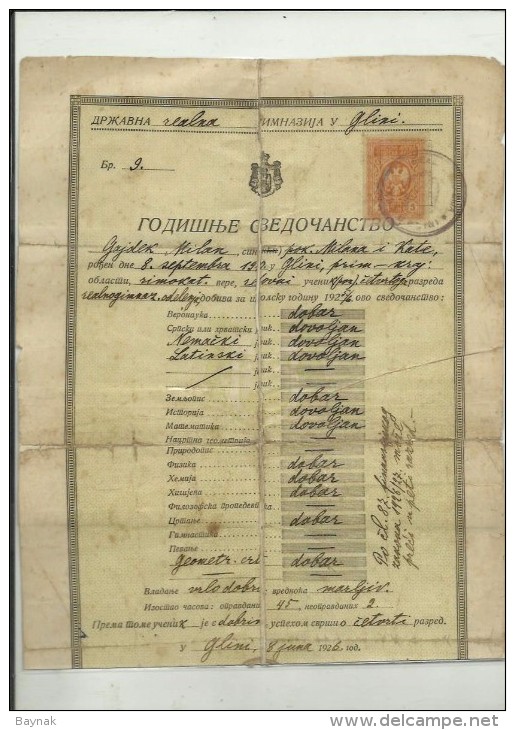 ДРЖАВНА realna ГИМНАЗИЈА У Glini.
Бр. 9.
ГОДИШЊЕ СВЕДОЧАНСТВО
Gajdek Milan, син pok. Milana i Kate,
рођен дне 8. septembra 19 у Glini, prim.-kraj.
области, rimokat. вере, redovni ученик четvrtog разреда
realnogimnaz. добива за школску годину 1925/6 ово сведочанство:
Веронаука dobar
Српски или хрватски језик dovoljan
Nemački језик dovoljan
Latinski језик dovoljan
/ језик
језик
Земљопис dobar
Историја dovoljan
Математика dovoljan
Нацртна геометрија
Природопис
Физика dobar
Хемија dobar
Хигијена dobar
Филозофска пропедевтика
Цртање dobar
Гимнастика
Певање
geometr. crt. dobar
Владање vrlo dobro, вредноћа marljiv.
Изостао часова: оправданих 45, неоправданих 2.
Према томе ученик је с dobrim успехом свршио četvrti разред.
У Glini, 8 juna 1926 год.
Po čl. 82. finansijskog
zakona 1926/27. može
preći u peti razred.
Baynak
delcampe.net